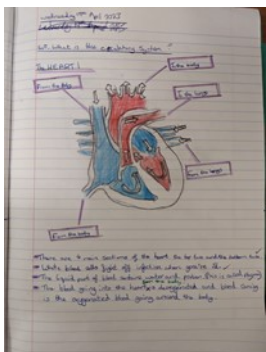 Wednesday April 2025
WT: What is the circulatory system
The HEART!
To the body
From the body
To the lungs
From the lungs
From the body
There are 4 main sections of the heart the top two and the bottom two
White blood cells fight off infection when you're ill
The liquid part of blood contains water and protien (this is called
The blood going into the heart is deoxygenated and blood
from the body
is the oxygenated blood going around the body.